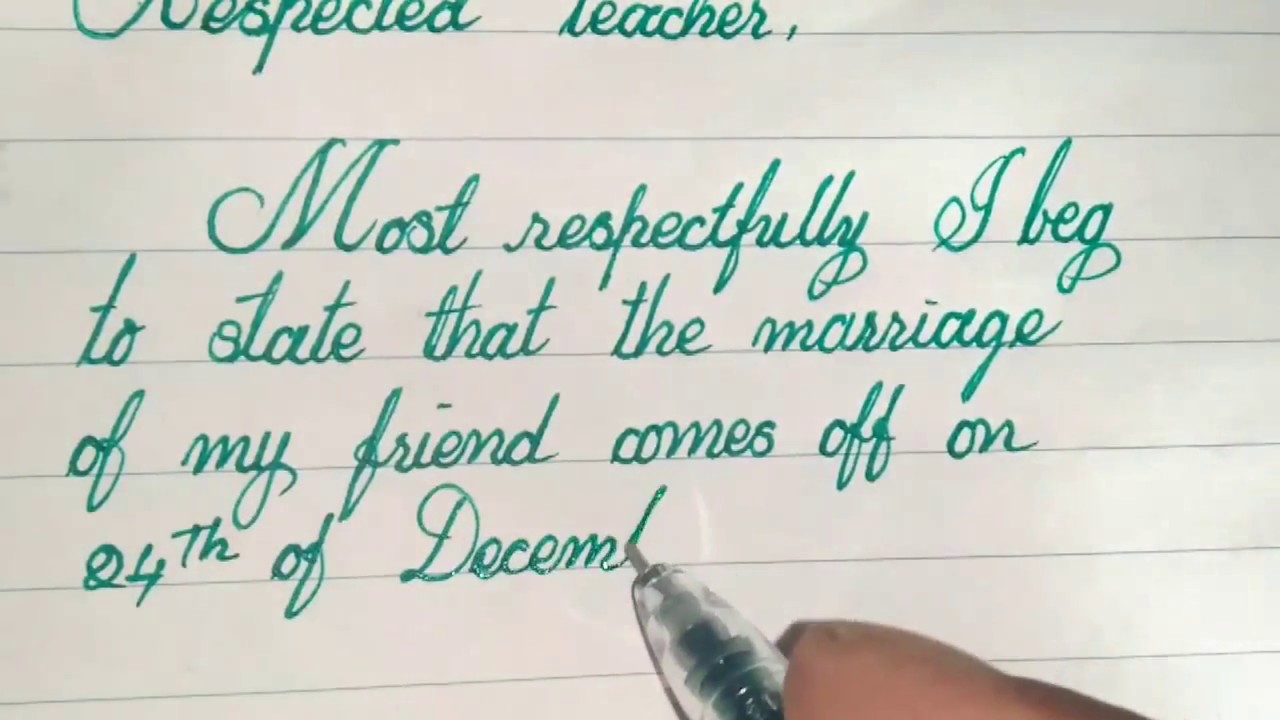 Respected teacher,
Most respectfully I beg
to state that the marriage
of my friend comes off on
24th of Decem